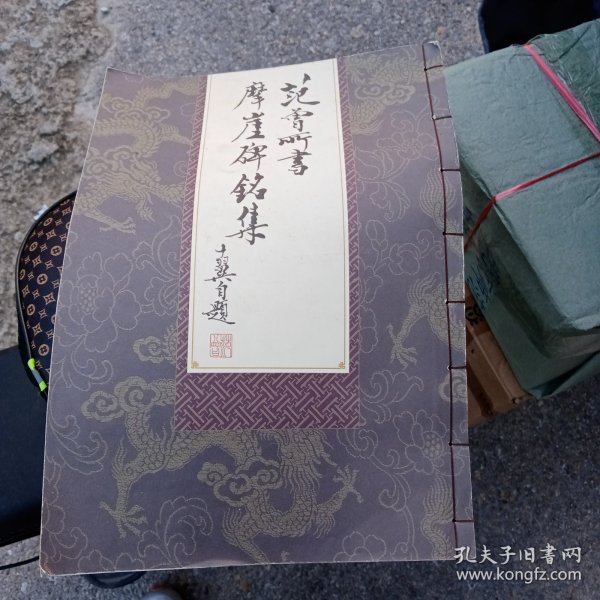 范曾所书
摩崖碑铭集
十翼自题
孔夫子旧书网
www.kongfz.com